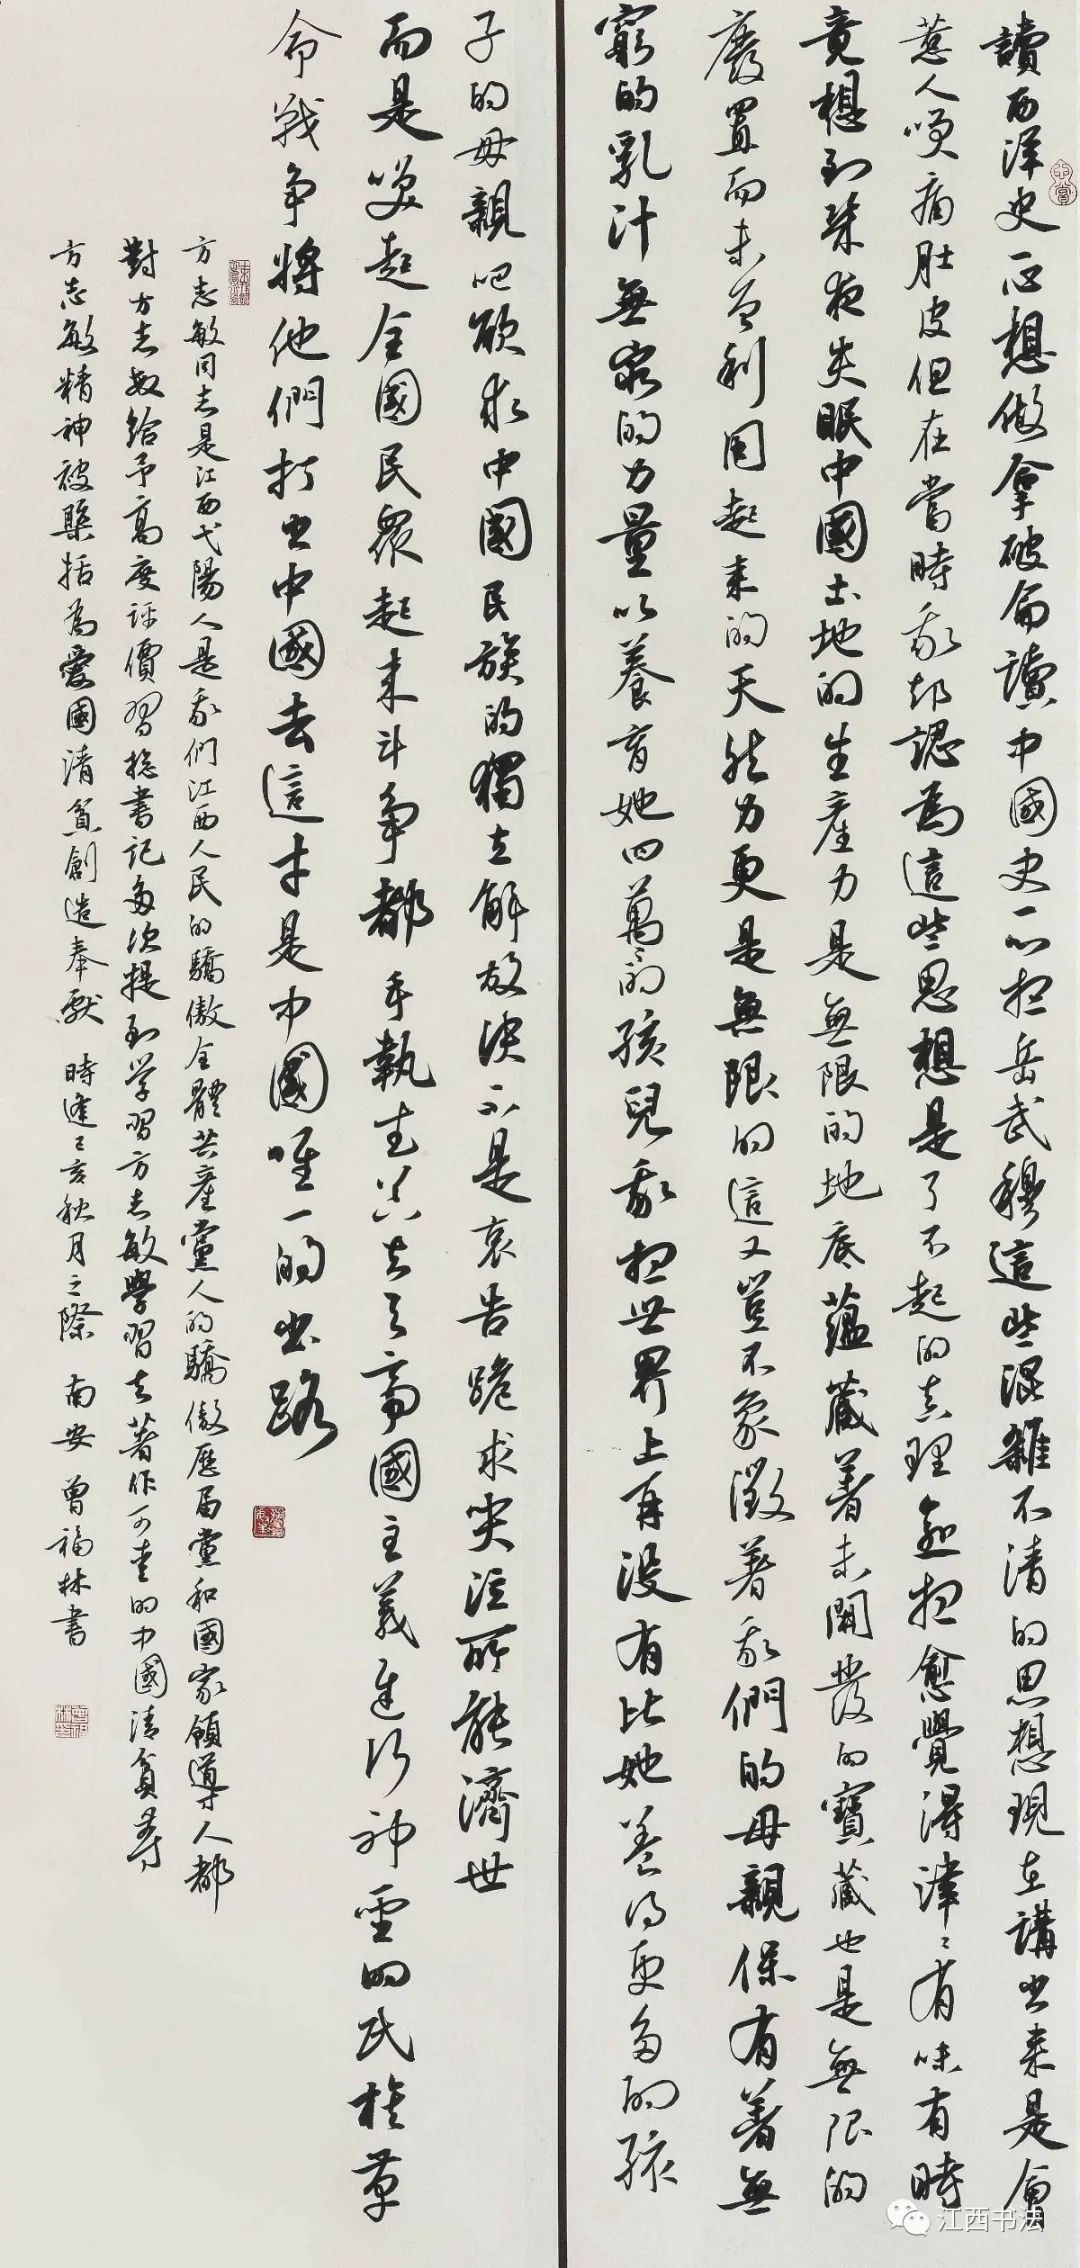 讀西洋史一心想做拿破侖讀中國史一心想岳武穆這些混雜不清的思想現在講出來是會
惹人笑痛肚皮但在當時我却認為這些思想是了不起的真理愈想愈覺得津津有味有時
竟想到榮夜失眠中國土地的生產力是無限的地底蘊藏着未開發的寶藏也是無限的
廢置而未曾利用起來的天然力更是無限的這又豈不象徵着我們的母親保有著無
窮的乳汁無窮的力量以養育她四萬萬的孩兒我想世界上再没有比她養得更多的孩
子的母親吧欲求中國民族的獨立解放决不是哀告跪求哭泣所能濟世
而是喚起全國民眾起來斗争都手執着武器去與帝國主義進行神聖的民族革
命戰争將他們打出中國去這才是中國唯一的出路
方志敏同志是江西弋陽人是我們江西人民的驕傲全體共產黨人的驕傲歷届黨和國家領導人都
對方志敏給予高度評價習總書記多次提到學習方志敏學習其著作可愛的中國清貧等
方志敏精神被概括為愛國清貧創造奉獻 時逢己亥秋月之際 南安 曾福林書
江西书法